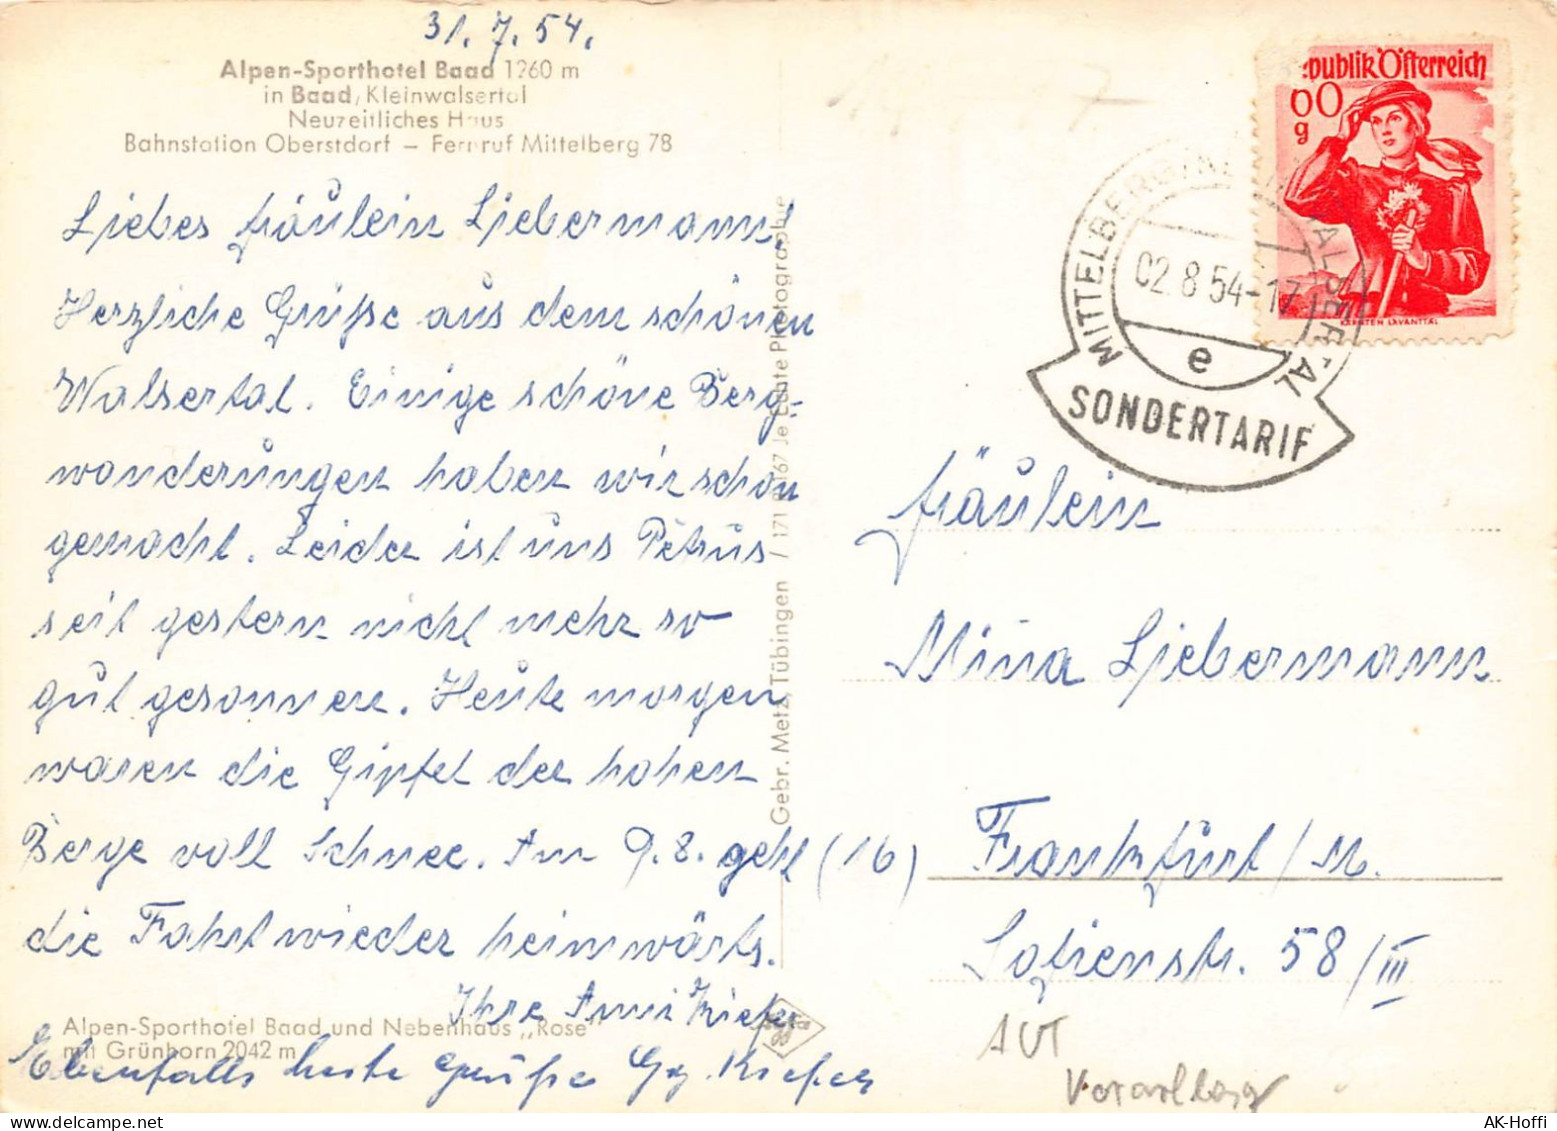 31.7.54.
Alpen-Sporthotel Baad 1260 m
in Baad, Kleinwalsertal
Neuzeitliches Haus
Bahnstation Oberstdorf – Fernruf Mittelberg 78
Liebes Fräulein Liebermann.
Herzliche Grüße aus dem schönen
Walsertal. Einige schöne Berg-
wanderungen haben wir schon
gemacht. Leider ist uns Petrus
seit gestern nicht mehr so
gut gesonnen. Heute morgen
waren die Gipfel der hohen
Berge voll Schnee. Am 9.8. geht
die Fahrt wieder heimwärts.
Ihre Anni Kiefer
Ebenfalls beste Grüße Gg. Kiefer
Alpen-Sporthotel Baad und Nebenhaus „Rose"
mit Grünhorn 2042 m
Gebr. Metz, Tübingen / 171 Je Echte Photographie
Republik Österreich
60
g
KÄRNTEN LAVANTTAL
MITTELBERG WALSERTAL
02.8.54-17
e
SONDERTARIF
Fräulein
Mina Liebermann
(16) Frankfurt/M.
Sofienstr. 58/III
AUT
Vorarlberg
AK-Hoffi